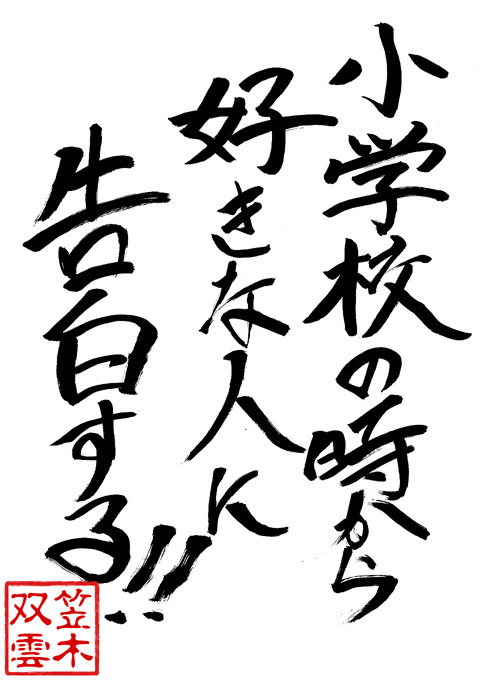 小学校の時から
好きな人に
告白する!!
笠木
双雲